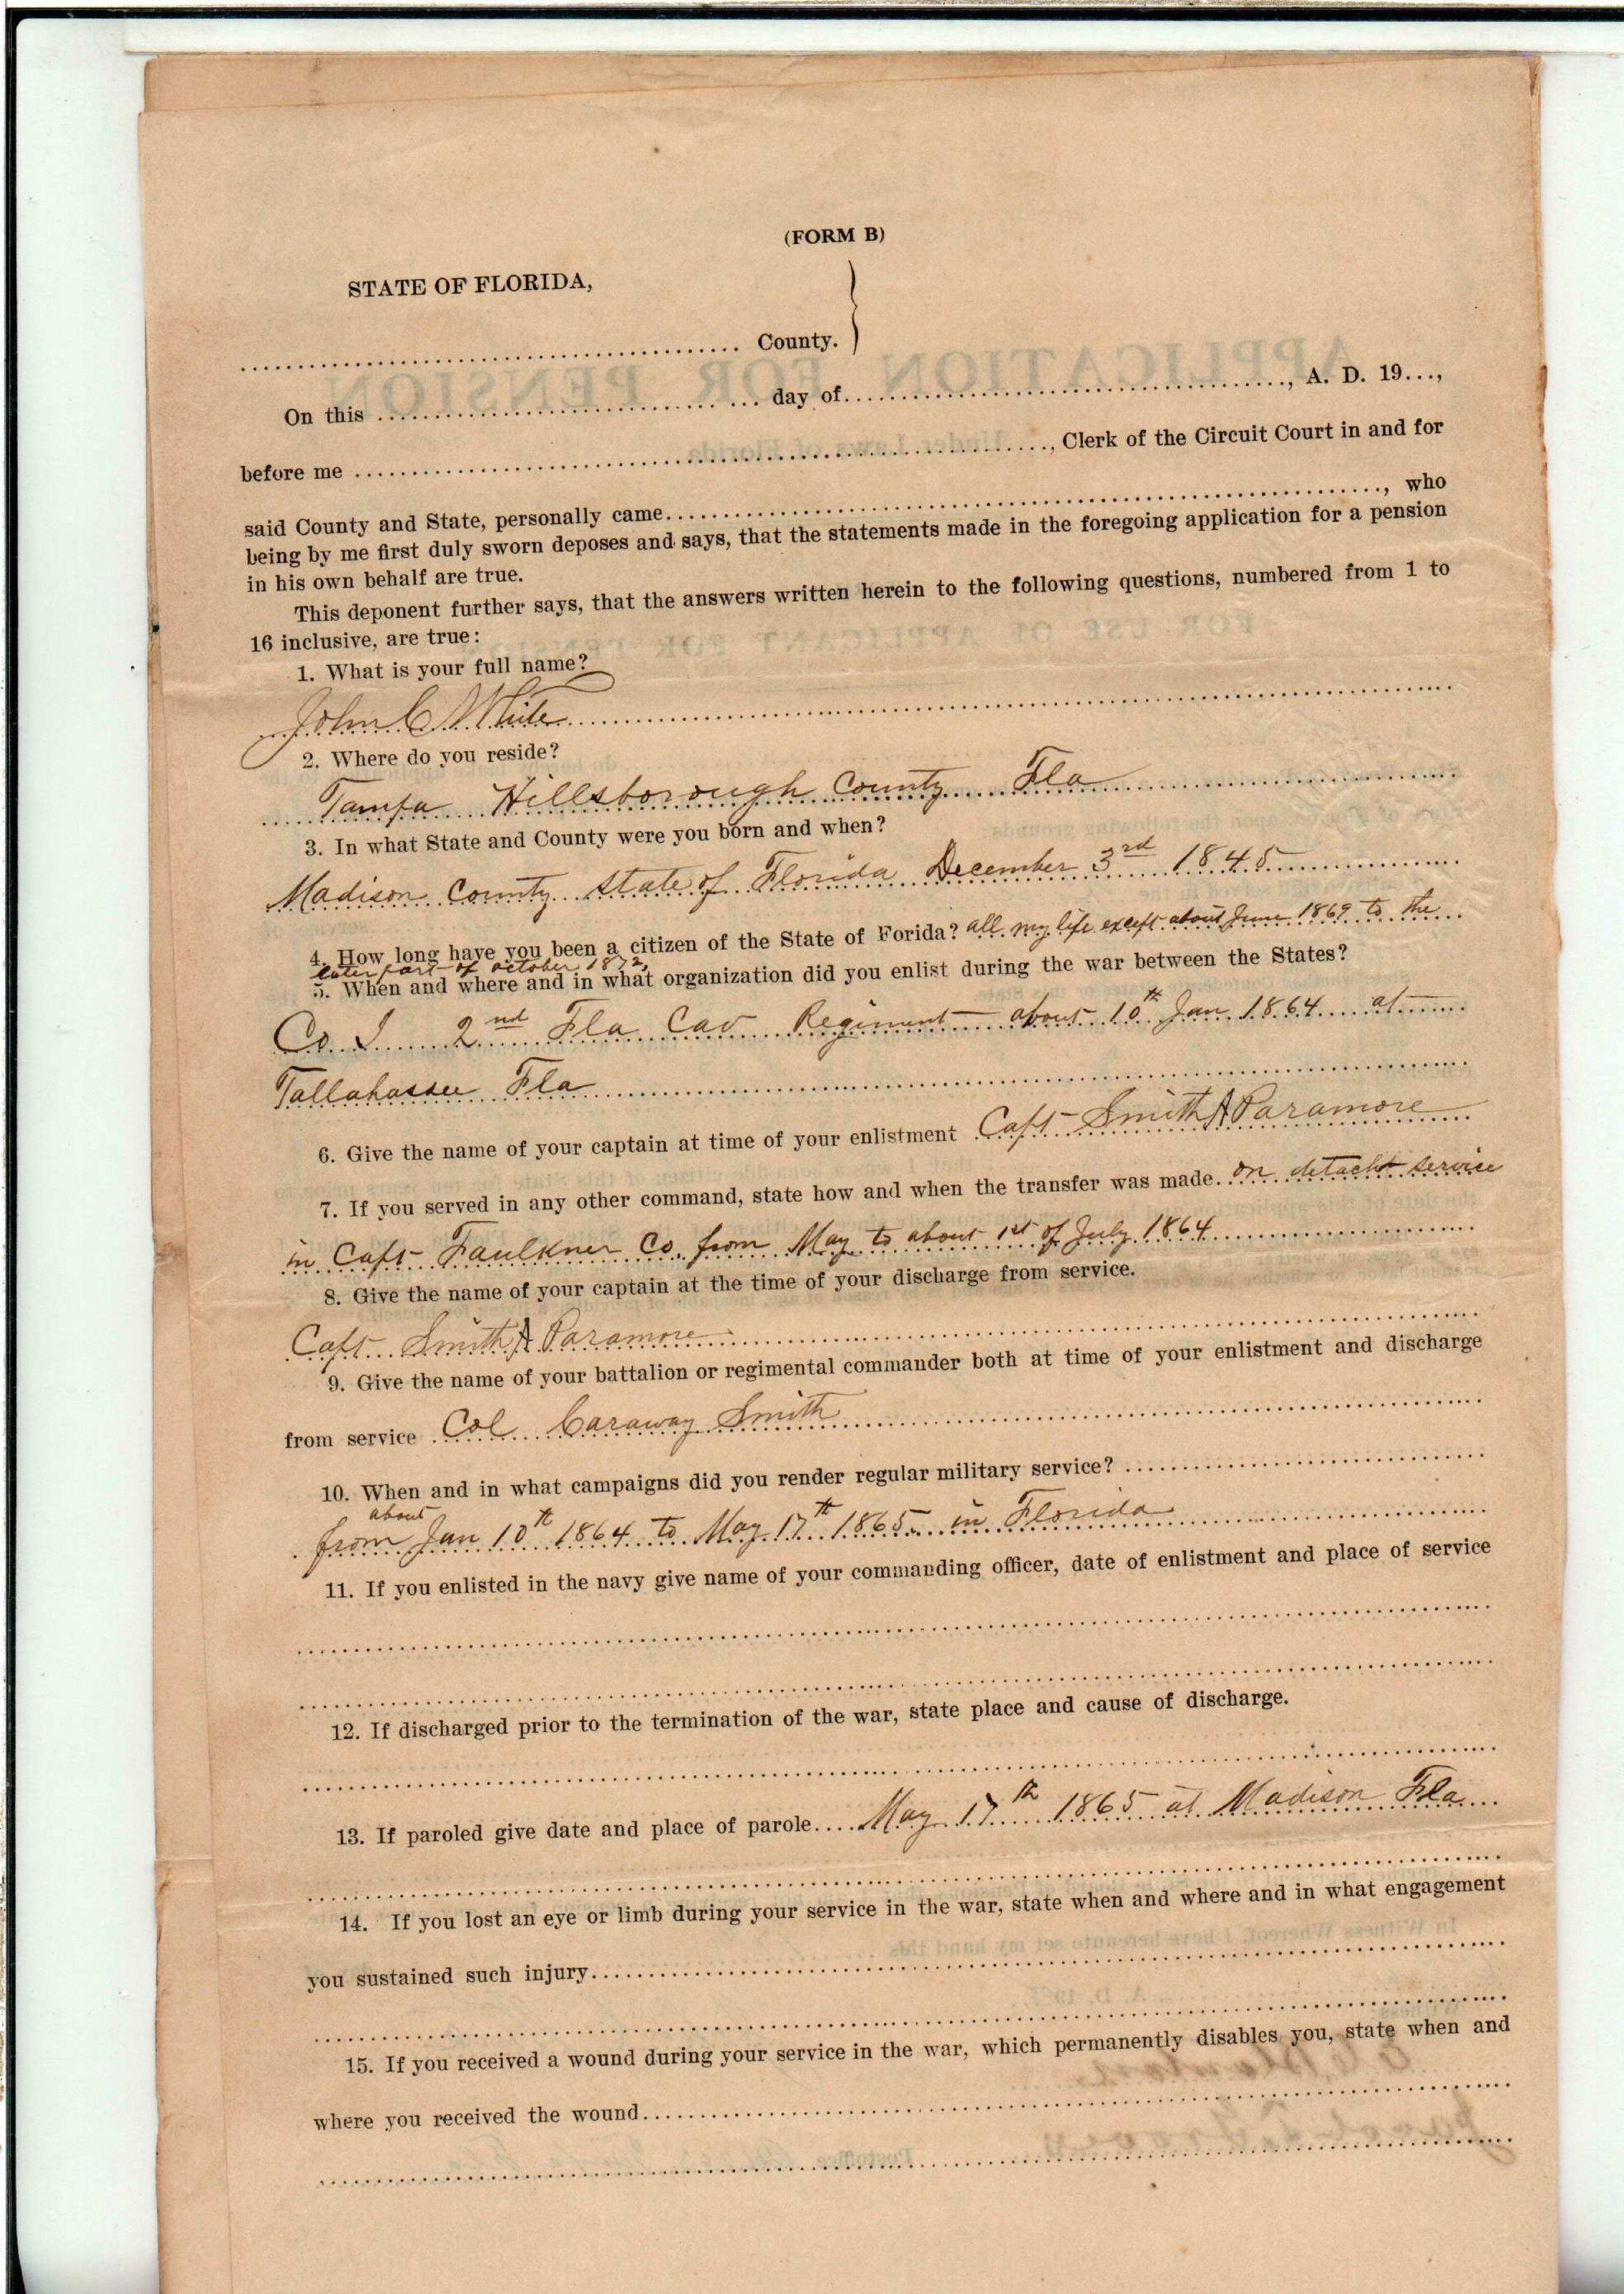 (FORM B)
STATE OF FLORIDA,
County.
On this day of , A. D. 19...,
before me , Clerk of the Circuit Court in and for
said County and State, personally came , who
being by me first duly sworn deposes and says, that the statements made in the foregoing application for a pension
in his own behalf are true.
This deponent further says, that the answers written herein to the following questions, numbered from 1 to
16 inclusive, are true:
1. What is your full name?
John C White
2. Where do you reside?
Tampa Hillsborough County Fla
3. In what State and County were you born and when?
Madison County State of Florida December 3rd 1845
4. How long have you been a citizen of the State of Forida? all my life except about June 1869 to the
later part of october 1872,
5. When and where and in what organization did you enlist during the war between the States?
Co. I 2nd Fla Cav Regiment about 10th Jan 1864 at
Tallahassee Fla
6. Give the name of your captain at time of your enlistment Capt Smith A Paramore
7. If you served in any other command, state how and when the transfer was made. on detacht service
in Capt Faulkner Co. from May to about 1st of July 1864
8. Give the name of your captain at the time of your discharge from service.
Capt Smith A Paramore
9. Give the name of your battalion or regimental commander both at time of your enlistment and discharge
from service Col Caraway Smith
10. When and in what campaigns did you render regular military service?
about
from Jan 10th 1864 to May 17th 1865 in Florida
11. If you enlisted in the navy give name of your commanding officer, date of enlistment and place of service
12. If discharged prior to the termination of the war, state place and cause of discharge.
13. If paroled give date and place of parole.... May 17th 1865 at Madison Fla
14. If you lost an eye or limb during your service in the war, state when and where and in what engagement
you sustained such injury
15. If you received a wound during your service in the war, which permanently disables you, state when and
where you received the wound